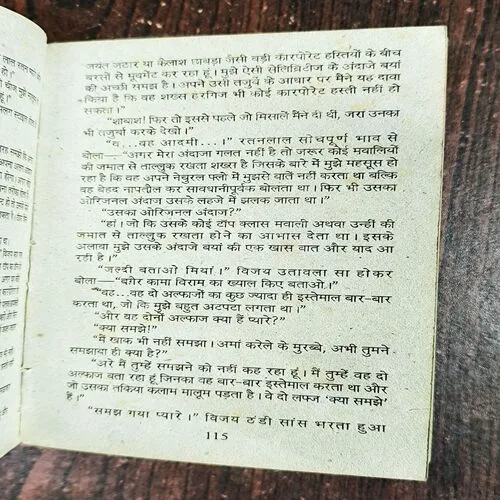 जयंत जटार या कैलाश छाबड़ा जैसी बड़ी कारपोरेट हस्तियों के बीच
बरसों से मूवमेंट कर रहा हूं। मुझे ऐसी सेलिब्रिटीज के अंदाजे बयां
की अच्छी समझ है। अपने उसी तजुर्बे के आधार पर मैंने यह दावा
किया है कि वह शख्स हरगिज भी कोई कारपोरेट हस्ती नहीं हो
सकता।”
“शाबाश! फिर तो इससे पहले जो मिसालें मैंने दी थीं, जरा उनका
भी तजुर्बा करके देखो।”
“व...वह आदमी...।” रतनलाल सोचपूर्ण भाव से
बोला—“अगर मेरा अंदाजा गलत नहीं है तो जरूर कोई मवालियों
की जमात से ताल्लुक रखता शख्स है जिसके बारे में मुझे महसूस हो
रहा है कि वह अपने नेचुरल फ्लो में मुझसे बातें नहीं करता था बल्कि
वह बेहद नापतौल कर सावधानीपूर्वक बोलता था। फिर भी उसका
ओरिजनल अंदाज उसके लहजे में झलक जाता था।”
“उसका ओरिजनल अंदाज?”
“हां। जो कि उसके कोई टॉप क्लास मवाली अथवा उन्हीं की
जमात से ताल्लुक रखता होने का आभास देता था। इसके
अलावा मुझे उसके अंदाजे बयां की एक खास बात और याद आ
रही है।”
“जल्दी बताओ मियां।” विजय उतावला सा होकर
बोला—“बगैर कामा विराम का ख्याल किए बताओ।”
“वह...वह दो अल्फाजों का कुछ ज्यादा ही इस्तेमाल बार-बार
करता था, जो कि मुझे बहुत अटपटा लगता था।”
“और वह दोनों अल्फाज क्या हैं प्यारे?”
“क्या समझे!”
“मैं खाक भी नहीं समझा। अमां करेले के मुरब्बे, अभी तुमने
समझाया ही क्या है?”
“अरे मैं तुम्हें समझने को नहीं कह रहा हूं। मैं तुम्हें वह दो
अल्फाज बता रहा हूं जिनका वह बार-बार इस्तेमाल करता था और
जो उसका तकिया कलाम मालूम पड़ता है। वे दो लफ्ज ‘क्या समझे’
हैं।”
“समझ गया प्यारे।” विजय ठंडी सांस भरता हुआ
115